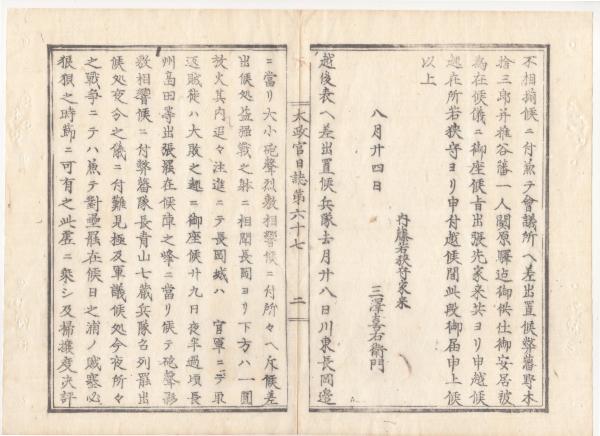 不相揃候ニ付兼テ會議所ヘ差出置候弊藩野木
捨三郎并雅谷藩一人關原驛迠御供仕御安居被
為在候儀ニ御座候旨出張先家来共ヨリ申越候
起在所若狭守ヨリ申付越候間此段御届申上候
以上
八月廿四日
内藤若狭守家来
三澤喜右衛門
越後表ヘ差出置候兵隊去月廿八日川東長岡邉
太政官日誌第六十七
二
ニ當リ大小砲聲烈敷相響候ニ付所々ヘ斥候差
出候処益强戰之躰ニ相聞長岡ヨリ下方ハ一圓
放火其内追々注進ニテ長岡城ハ 官軍ニテ乗
返賊徒ハ大敗之趣ニ御座候廿九日夜半過頃長
州高田等出張罷在候陣之峰ニ當リ候テ砲聲夥
敷相響候ニ付弊藩隊長青山七蔵兵隊召列罷出
候処夜分之儀ニ付難見極及軍議候処今夜所々
之戰爭ニテハ兼テ對壘罷在候日之浦ノ賊塞必
狼狽之時節ニ可有之此虚ニ乗シ及掃攘度決評